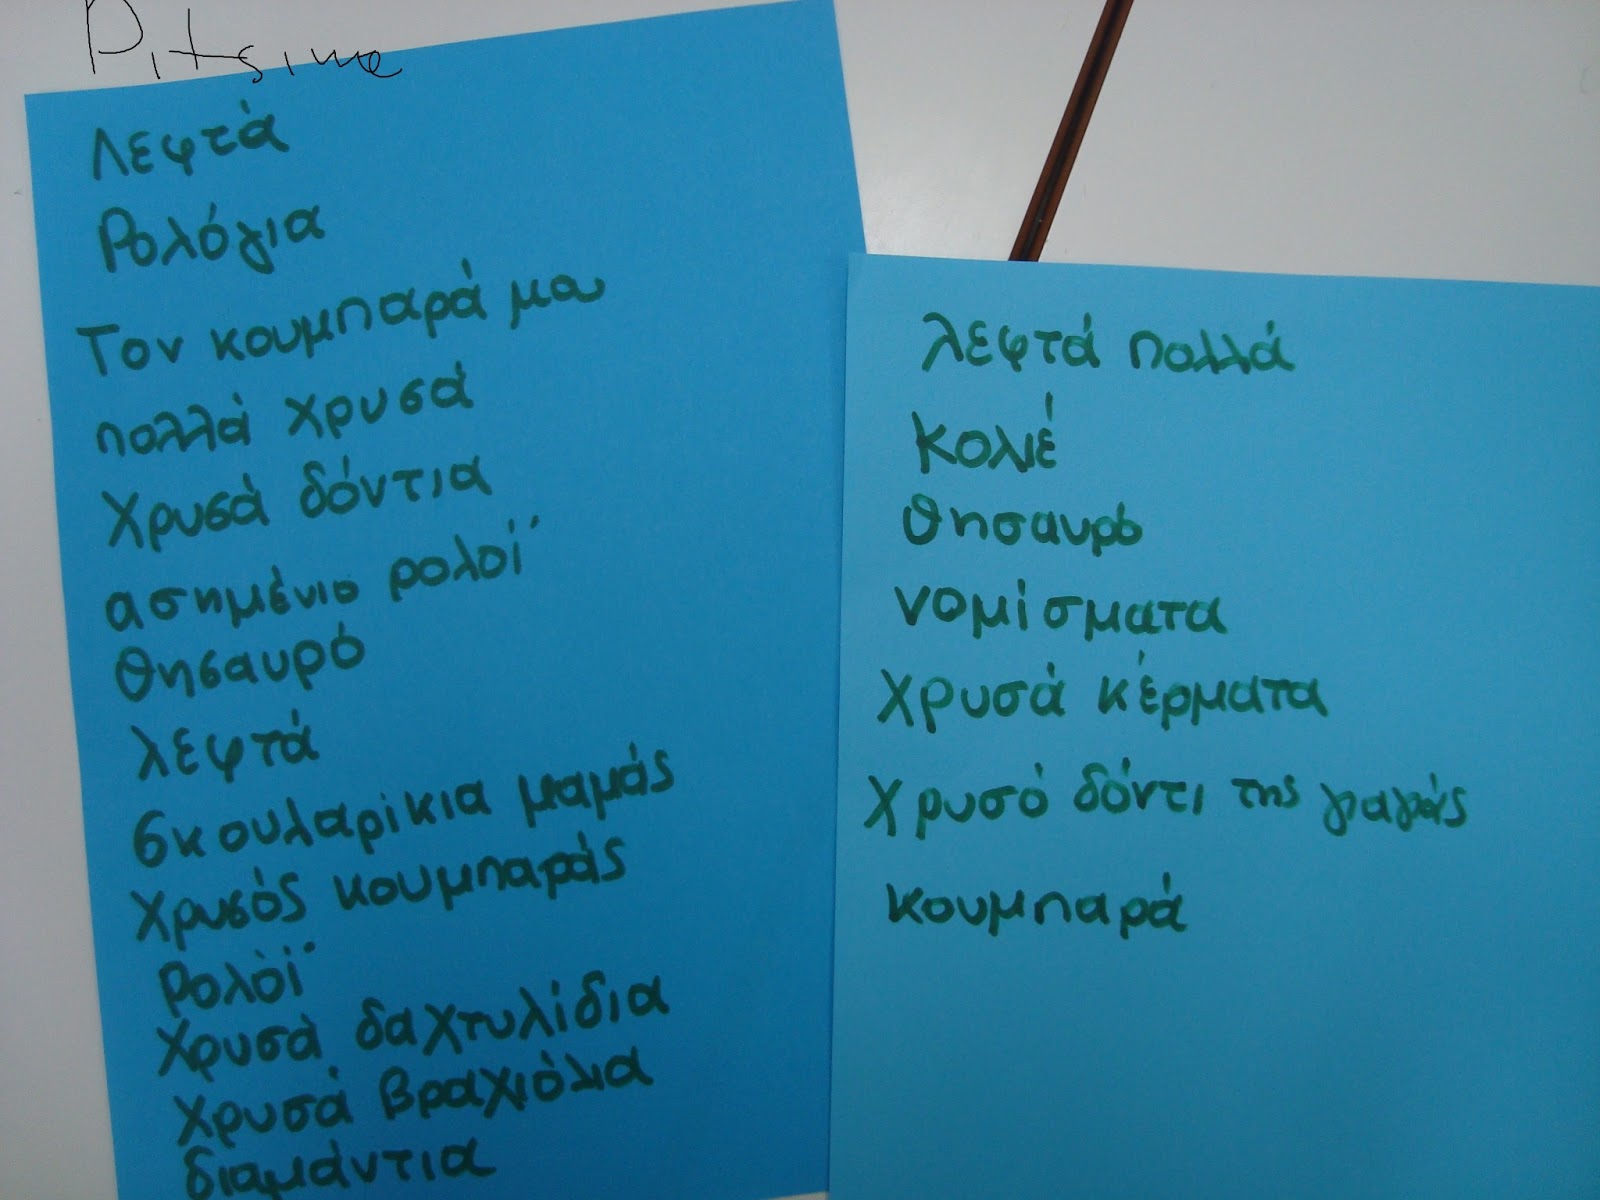 Pitsina
Λεφτά
Ρολόγια
Τον κουμπαρά μου
πολλά χρυσά
Χρυσά δόντια
ασημένιο ρολοϊ΄
Θησαυρό
λεφτά
σκουλαρίκια μαμάς
Χρυσός κουμπαράς
Ρολόϊ
Χρυσά δαχτυλίδια
Χρυσά βραχιόλια
διαμάντια
λεφτά πολλά
Κολιέ
Θησαυρό
νομίσματα
Χρυσά κέρματα
Χρυσό δόντι της γιαγιάς
κουμπαρά